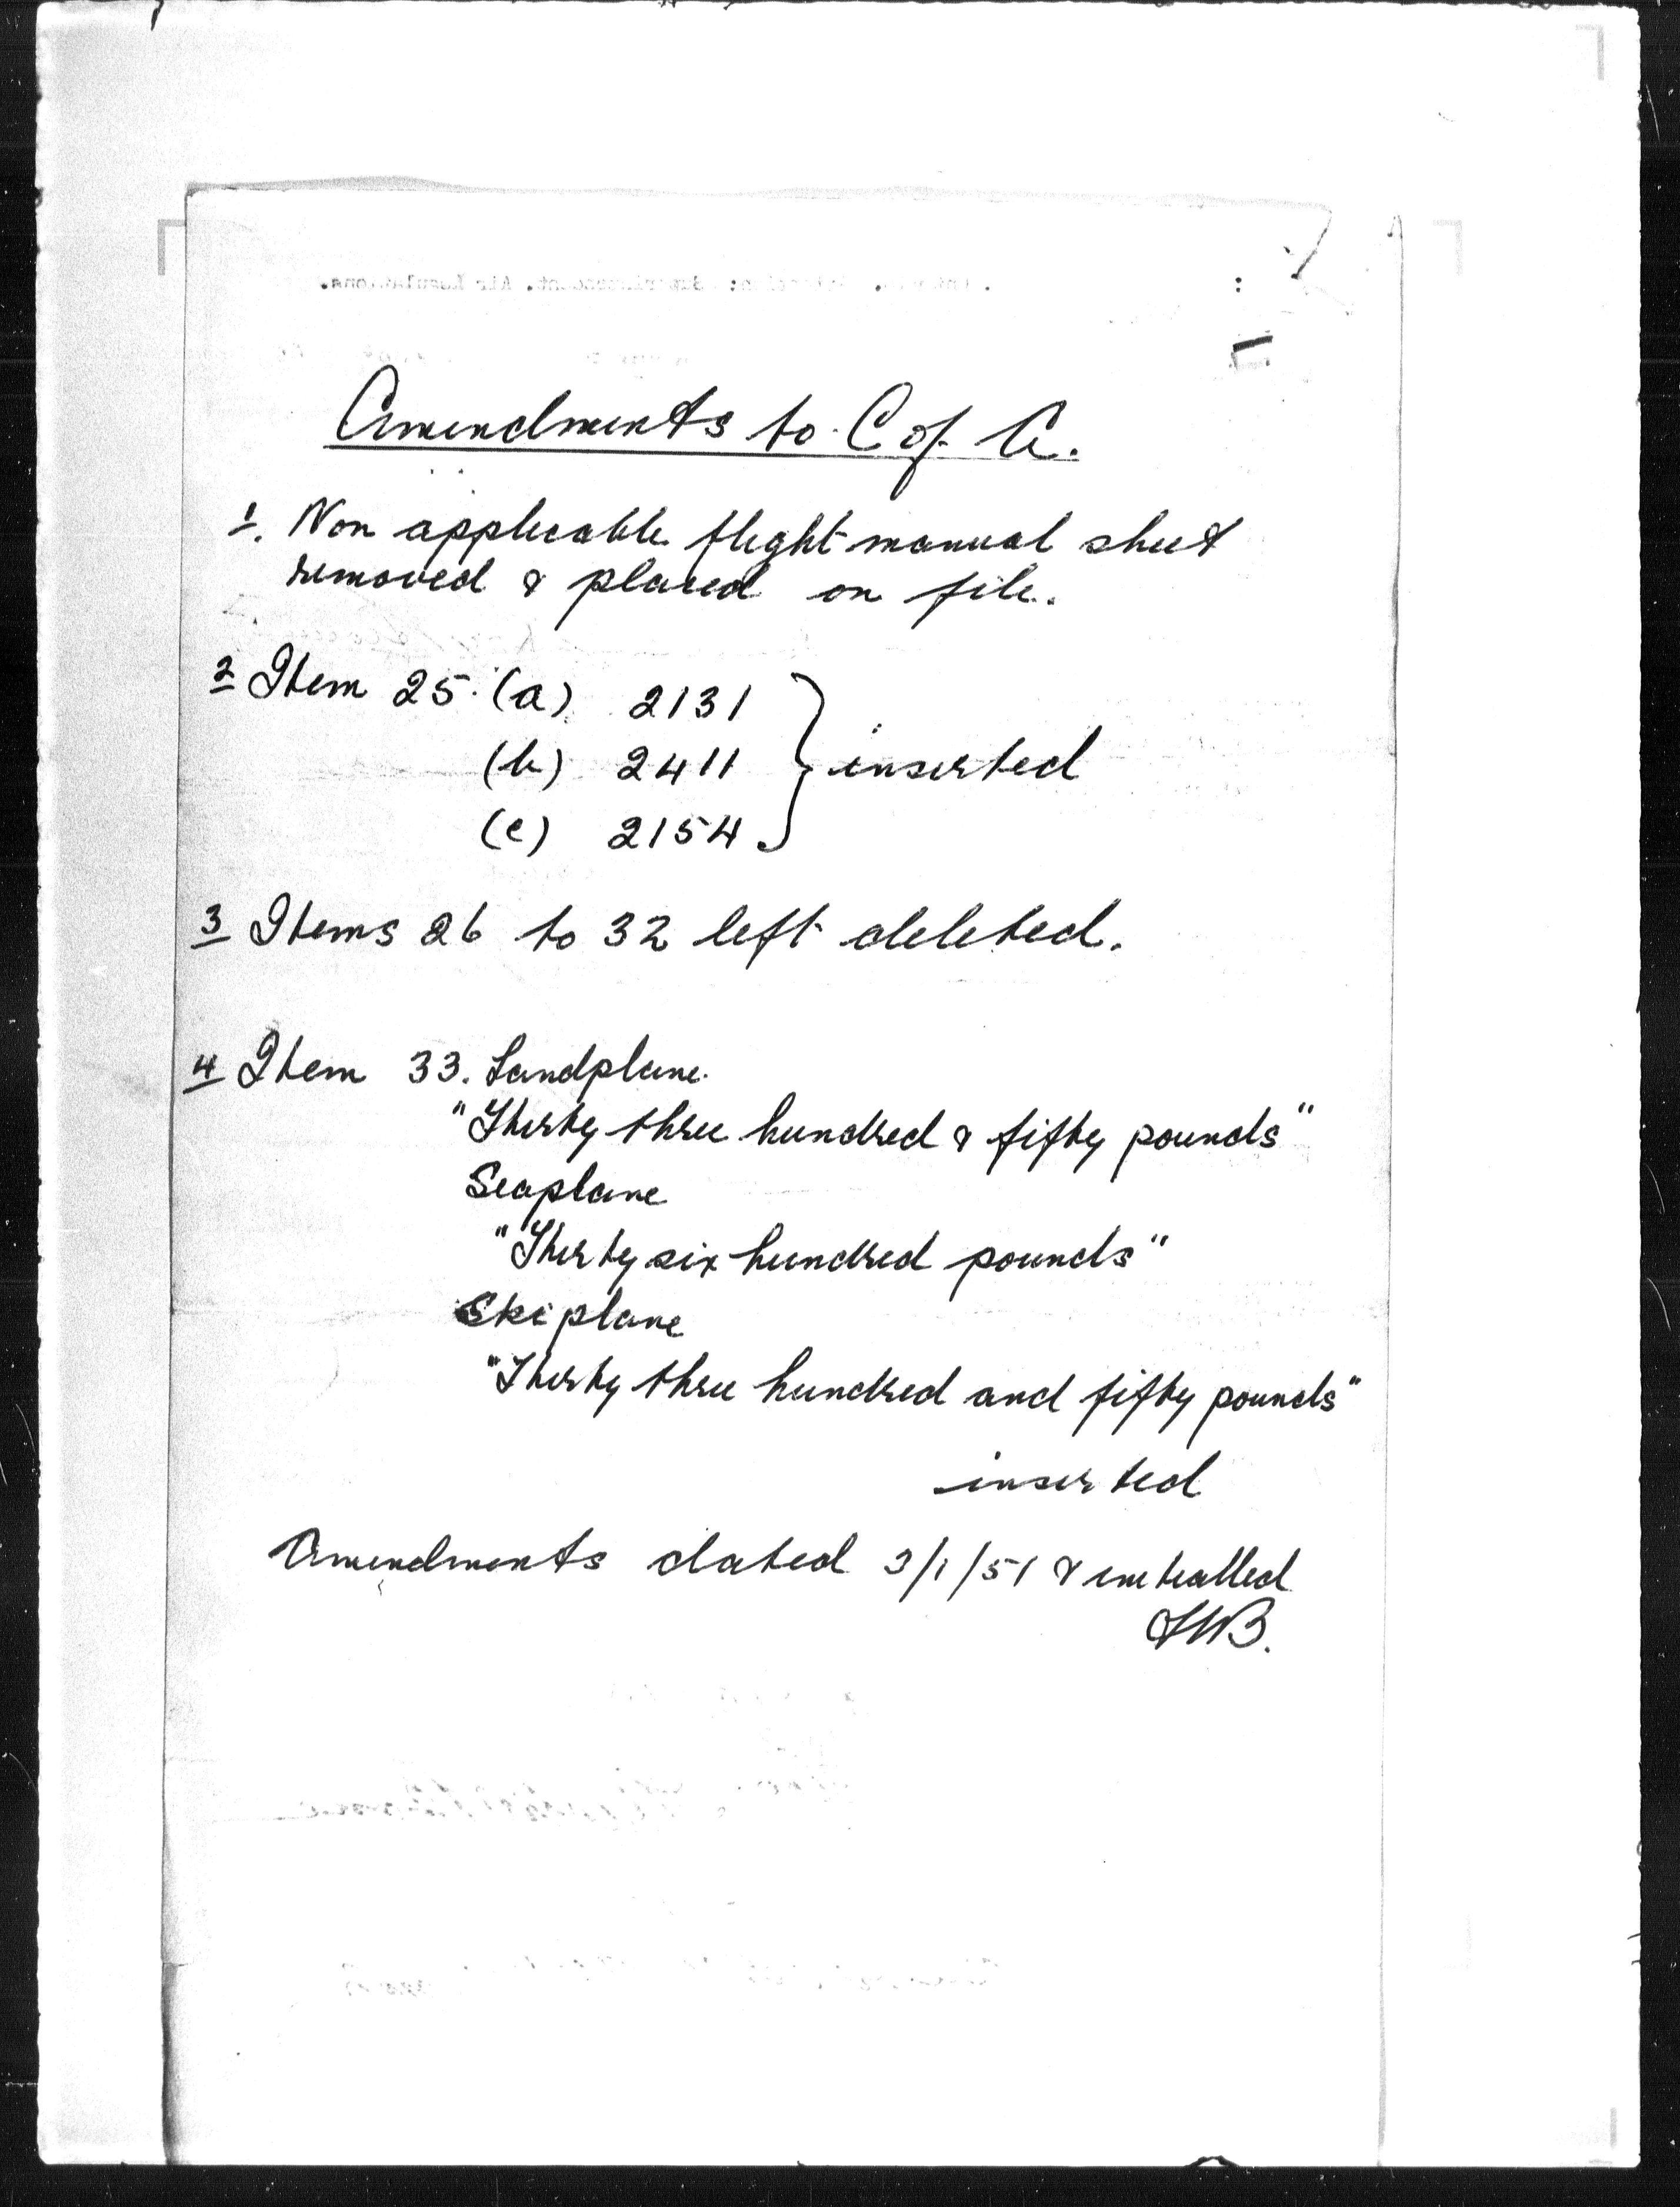 Amendments to C of A.
1. Non applicable flight manual sheet
removed & placed on file.
2 Item 25. (a) 2131
(b) 2411 } inserted
(c) 2154
3 Items 26 to 32 left deleted.
4 Item 33. Landplane.
"Thirty three hundred & fifty pounds"
Seaplane
"Thirty six hundred pounds"
Skiplane
"Thirty three hundred and fifty pounds"
inserted
Amendments dated 3/1/51 & initialled